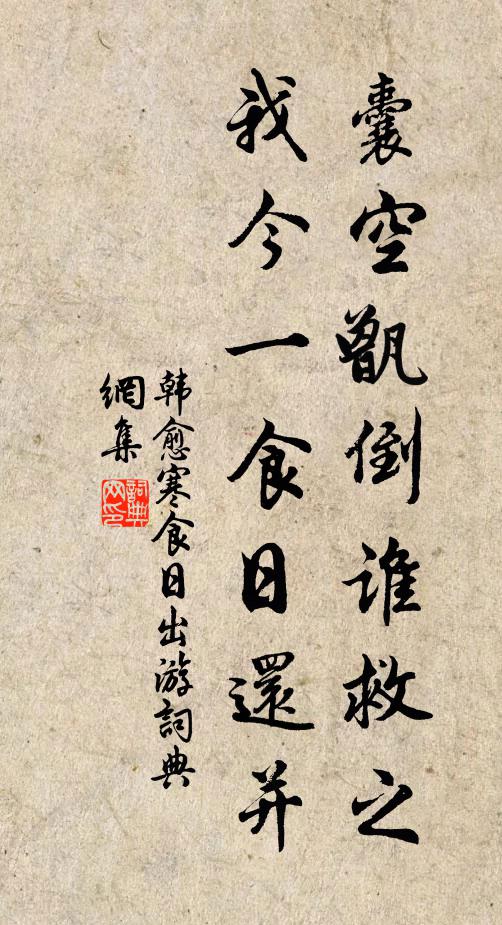 囊空甑倒谁救之
我今一食日還并
韩愈寒食日出游詞典
網集
詞典
网印